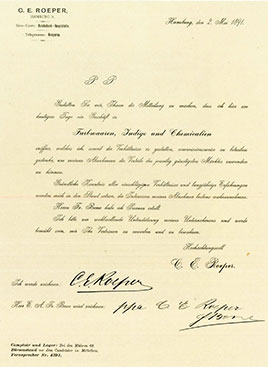 C. E. ROEPER,
HAMBURG 8.
Hamburg, den 2. Mai 1891.
P P
Gestatten Sie mir, Ihnen die Mitteilung zu machen, dass ich hier am
heutigen Tage ein Geschäft in
Farbwaaren, Indigo und Chemicalien
eröffne, welches ich soweit die Verhältnisse es gestatten, commissionsweise zu betreiben
gedenke, um meinen Abnehmern die Vorteile des jeweilig günstigsten Marktes zuwenden
zu können.
Gründliche Kenntnis aller einschlägigen Verhältnisse und langjährige Erfahrungen
werden mich in den Stand setzen, die Interessen meiner Abnehmer bestens wahrzunehmen.
Herrn habe ich Procura erteilt.
Ich bitte um wohlwollende Unterstützung meines Unternehmens und werde
bemüht sein, mir Ihr Vertrauen zu erwerben und zu bewahren.
Hochachtungsvoll
C. E. Roeper.
Ich werde zeichnen: C E Roeper
Herr wird zeichnen: ppa C E Roeper
Comptoir und Lager: Bei den Mühren 69
Börsenstand vor den
Fernsprecher Nr. 4391.